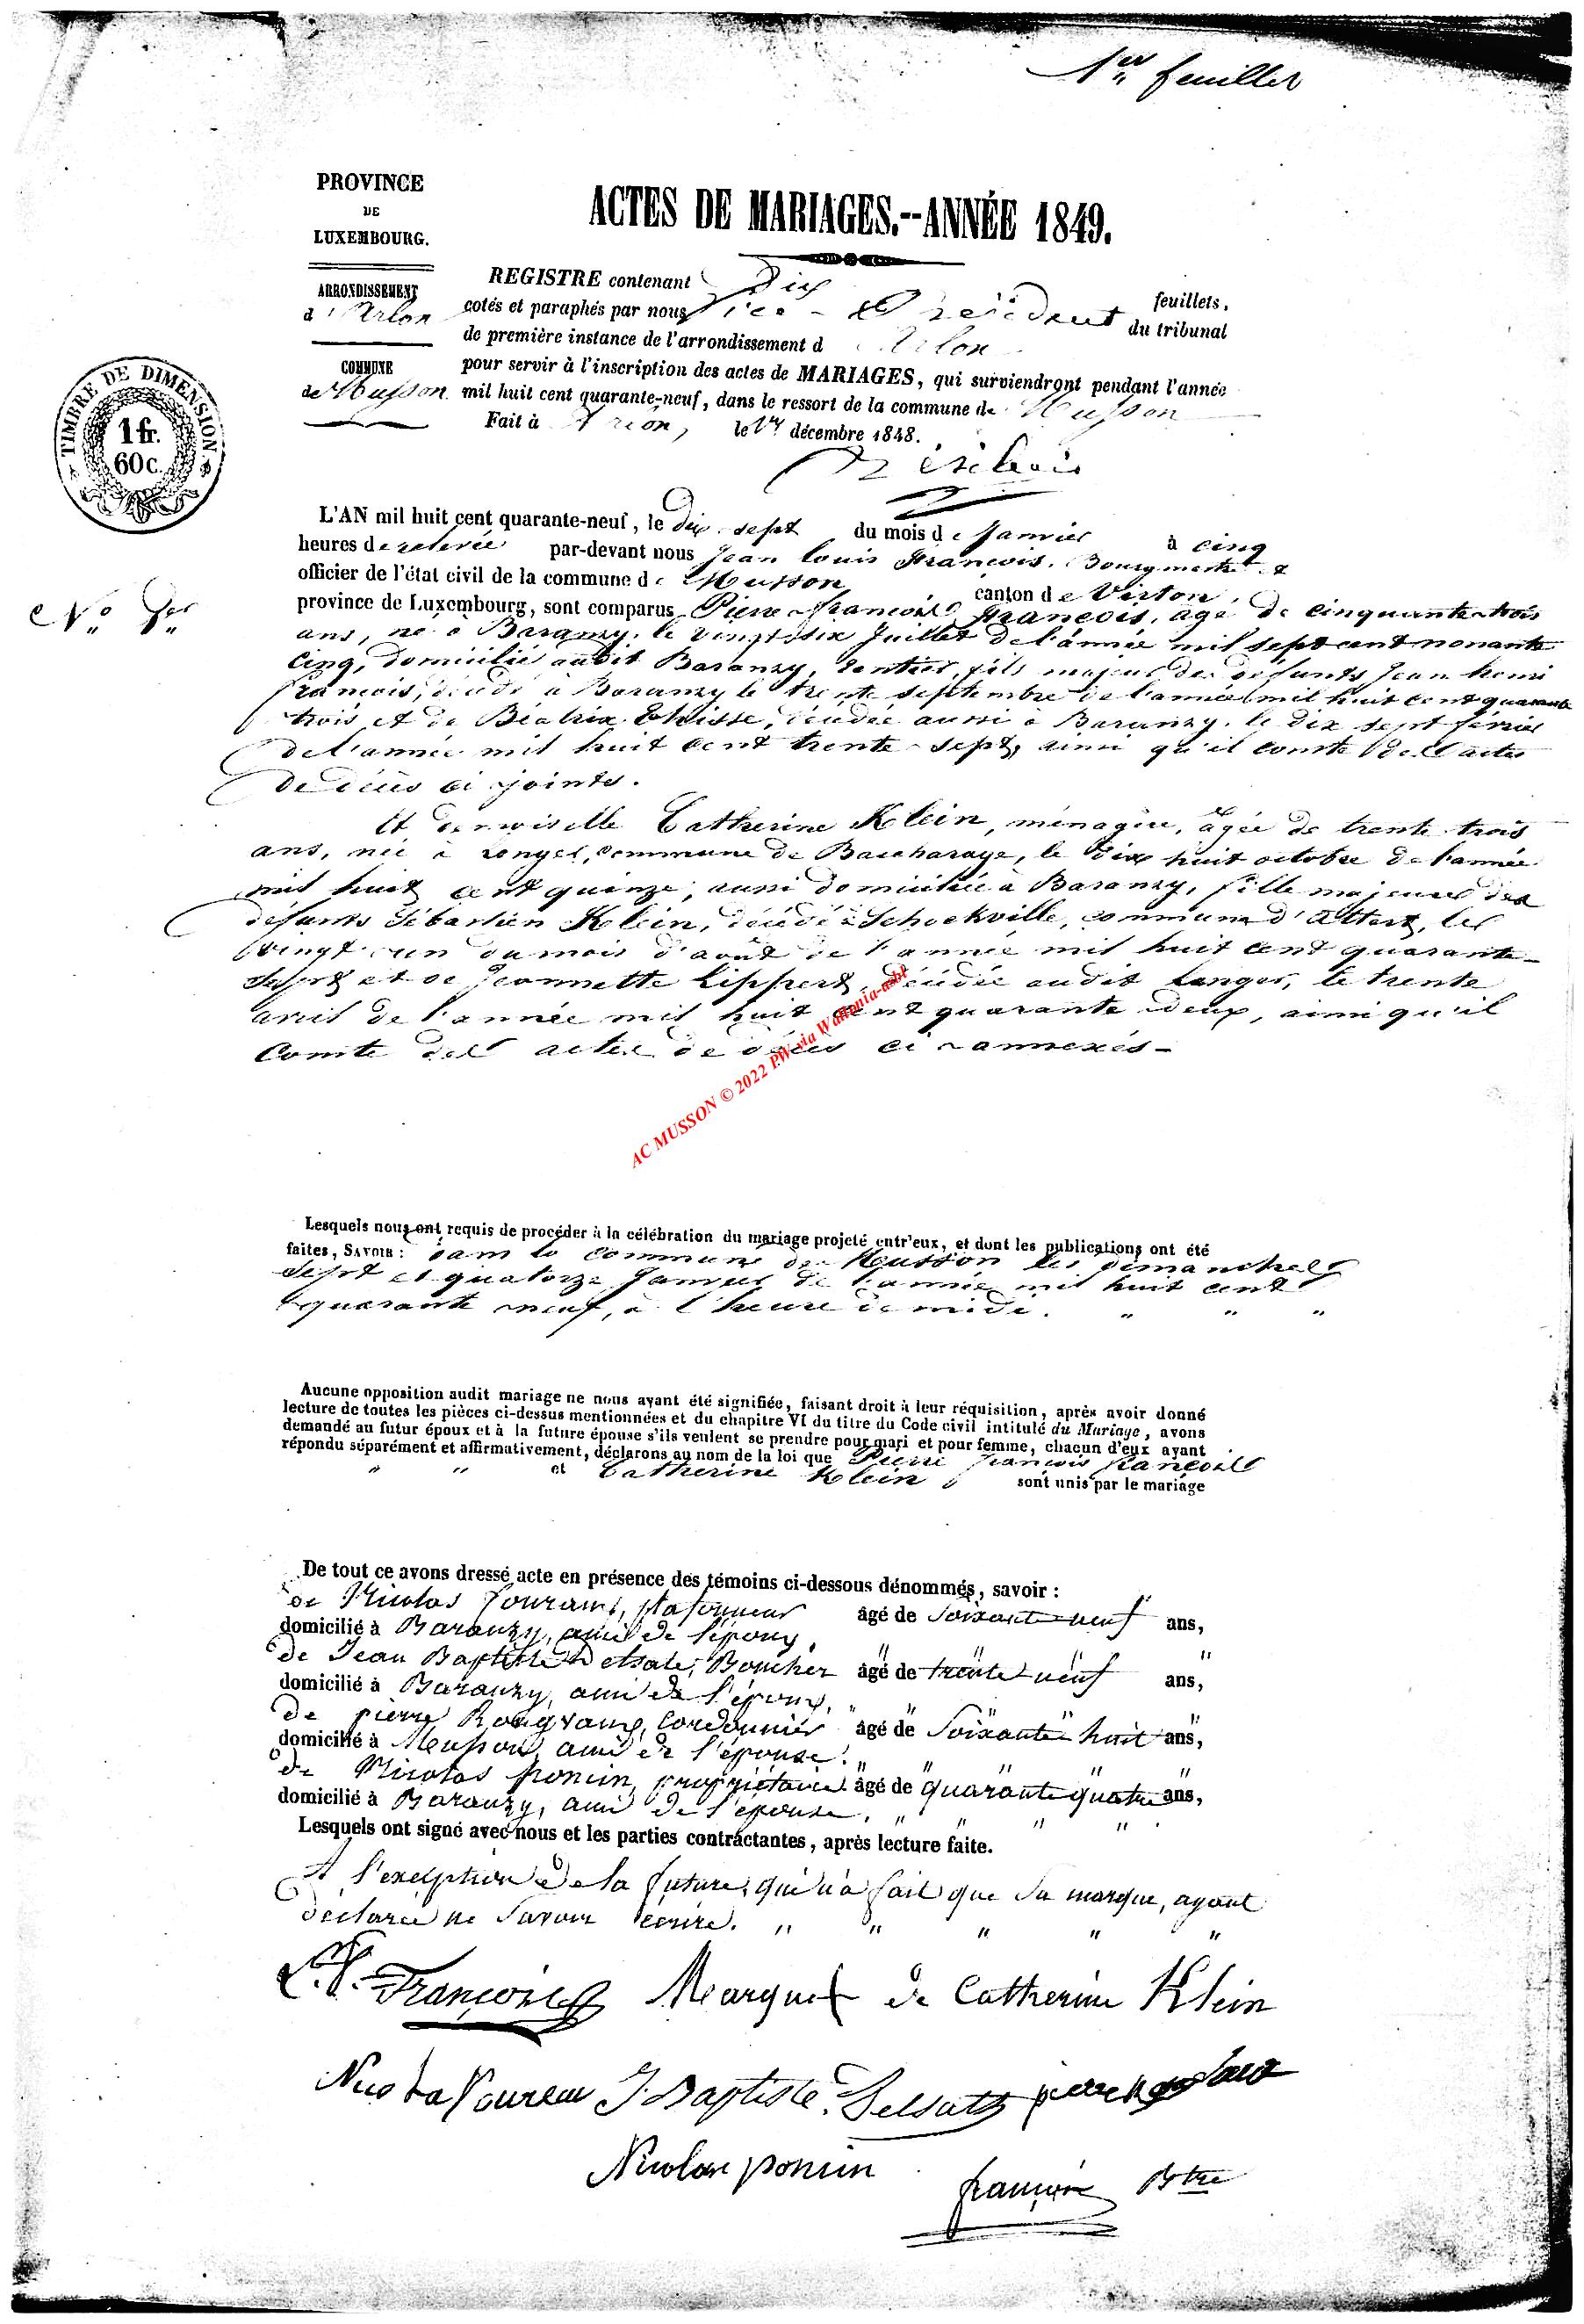 1er feuillet
PROVINCE
DE
LUXEMBOURG.
ARRONDISSEMENT
d'Arlon
COMMUNE
de Musson
ACTES DE MARIAGES.--ANNÉE 1849.
REGISTRE contenant Dix feuillets,
cotés et paraphés par nous Vice-Président du tribunal
de première instance de l'arrondissement d Arlon
pour servir à l'inscription des actes de MARIAGES, qui surviendront pendant l'année
mil huit cent quarante-neuf, dans le ressort de la commune de Musson
Fait à Arlon, le 1er décembre 1848.
TIMBRE DE DIMENSION
1 fr.
60 c.
No 1er
L'AN mil huit cent quarante-neuf, le dix sept du mois de Janvier à cinq
heures de relevée par-devant nous Jean Louis François, Bourgmestre &
officier de l'état civil de la commune de Musson canton de Virton,
province de Luxembourg, sont comparus Pierre François François, agé de cinquante-trois
ans, né à Baranzy, le vingt six Juillet de l'année mil sept cent nonante
cinq, domicilié audit Baranzy, rentier, fils majeur des défunts Jean henri
François, décédé à Baranzy le trente septembre de l'année mil huit cent quarante
trois et de Béatrix Thisse, décédée aussi à Baranzy, le dix sept février
de l'année mil huit cent trente-sept, ainsi qu'il conste des actes
de décès ci joints.
Et demoiselle Catherine Klein, ménagère, agée de trente trois
ans, née à Longer, commune de Bascharage, le dix huit octobre de l'année
mil huit cent quinze, aussi domiciliée à Baranzy, fille majeure des
défunts Sébastien Klein, décédé à Schockville, commune d'Attert, le
vingt un du mois d'août de l'année mil huit cent quarante-
sept et de Jeannette Lippert, décédée audit Longer, le trente
avril de l'année mil huit cent quarante deux, ainsi qu'il
Conste des actes de décès ci-annexés-
AC MUSSON © 2022 PW via Wallonia-asbl
Lesquels nous ont requis de procéder à la célébration du mariage projeté entr'eux, et dont les publications ont été
faites, SAVOIR : dans la commune de Musson les dimanches
sept et quatorze Janvier de l'année mil huit cent
quarante neuf, à l'heure de midi. " " "
Aucune opposition audit mariage ne nous ayant été signifiée, faisant droit à leur réquisition, après avoir donné
lecture de toutes les pièces ci-dessus mentionnées et du chapitre VI du titre du Code civil intitulé du Mariage, avons
demandé au futur époux et à la future épouse s'ils veulent se prendre pour mari et pour femme, chacun d'eux ayant
répondu séparément et affirmativement, déclarons au nom de la loi que Pierre François François
" " et Catherine Klein sont unis par le mariage
De tout ce avons dressé acte en présence des témoins ci-dessous dénommés, savoir :
de Nicolas plafonneur âgé de Soixante-neuf ans,
domicilié à Baranzy, ami de l'époux,
de Jean Baptiste Delsate, Boucher âgé de trente-neuf ans,
domicilié à Baranzy, ami de l'époux,
de pierre Cordonnier âgé de Soixante huit ans,
domicilié à Musson, ami de l'épouse.
de Nicolas poncin, propriétaire âgé de quarante quatre ans,
domicilié à Baranzy, ami de l'épouse,
Lesquels ont signé avec nous et les parties contractantes, après lecture faite.
A l'exception de la future, qui n'a fait que sa marque, ayant
déclarée ne Savoir écrire. " " " " "
François Marque + de Catherine Klein
J. Baptiste Delsatte pierre
Nicolas poncin
françois Btre